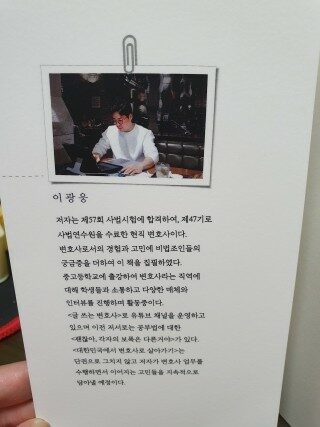 이 광 웅
저자는 제57회 사법시험에 합격하여, 제47기로
사법연수원을 수료한 현직 변호사이다.
변호사로서의 경험과 고민에 비법조인들의
궁금증을 더하여 이 책을 집필하였다.
중고등학교에 출강하여 변호사라는 직역에
대해 학생들과 소통하고 다양한 매체와
인터뷰를 진행하며 활동중이다.
<글 쓰는 변호사>로 유튜브 채널을 운영하고
있으며 이전 저서로는 공부법에 대한
<괜찮아, 각자의 보폭은 다른거야>가 있다.
<대한민국에서 변호사로 살아가기>는
단권으로 그치지 않고 저자가 변호사 업무를
수행하면서 이어지는 고민들을 지속적으로
담아낼 예정이다.